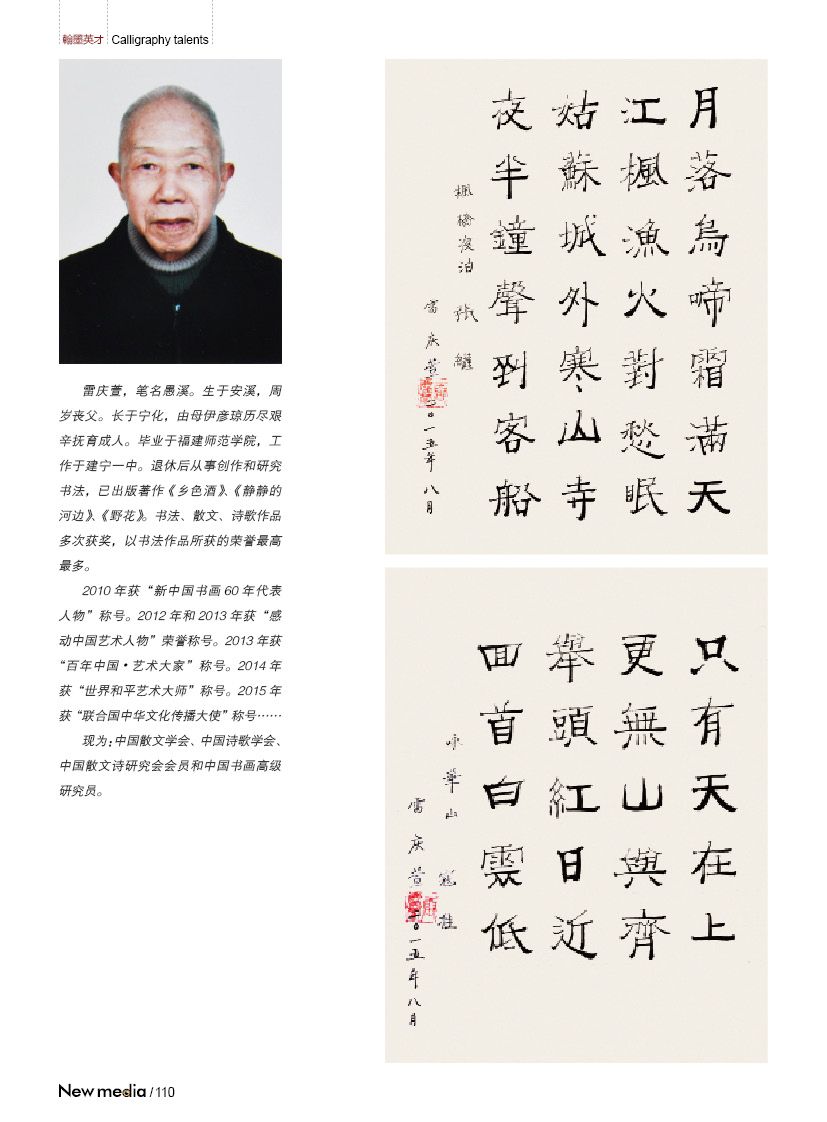 翰墨英才 Calligraphy talents
雷庆萱，笔名愚溪。生于安溪，周
岁丧父。长于宁化，由母伊彦琼历尽艰
辛抚育成人。毕业于福建师范学院，工
作于建宁一中。退休后从事创作和研究
书法，已出版著作《乡色酒》、《静静的
河边》、《野花》。书法、散文、诗歌作品
多次获奖，以书法作品所获的荣誉最高
最多。
2010 年获“新中国书画 60 年代表
人物”称号。2012 年和 2013 年获“感
动中国艺术人物”荣誉称号。2013 年获
“百年中国·艺术大家”称号。2014 年
获“世界和平艺术大师”称号。2015 年
获“联合国中华文化传播大使”称号……
现为：中国散文学会、中国诗歌学会、
中国散文诗研究会会员和中国书画高级
研究员。
月落烏啼霜滿天
江楓漁火對愁眠
姑蘇城外寒山寺
夜半鐘聲到客船
楓橋夜泊 张繼
雷庆萱 二〇一五年八月
只有天在上
更無山與齊
舉頭紅日近
回首白雲低
咏華山 寇準
雷庆萱 二〇一五年八月
New media / 110